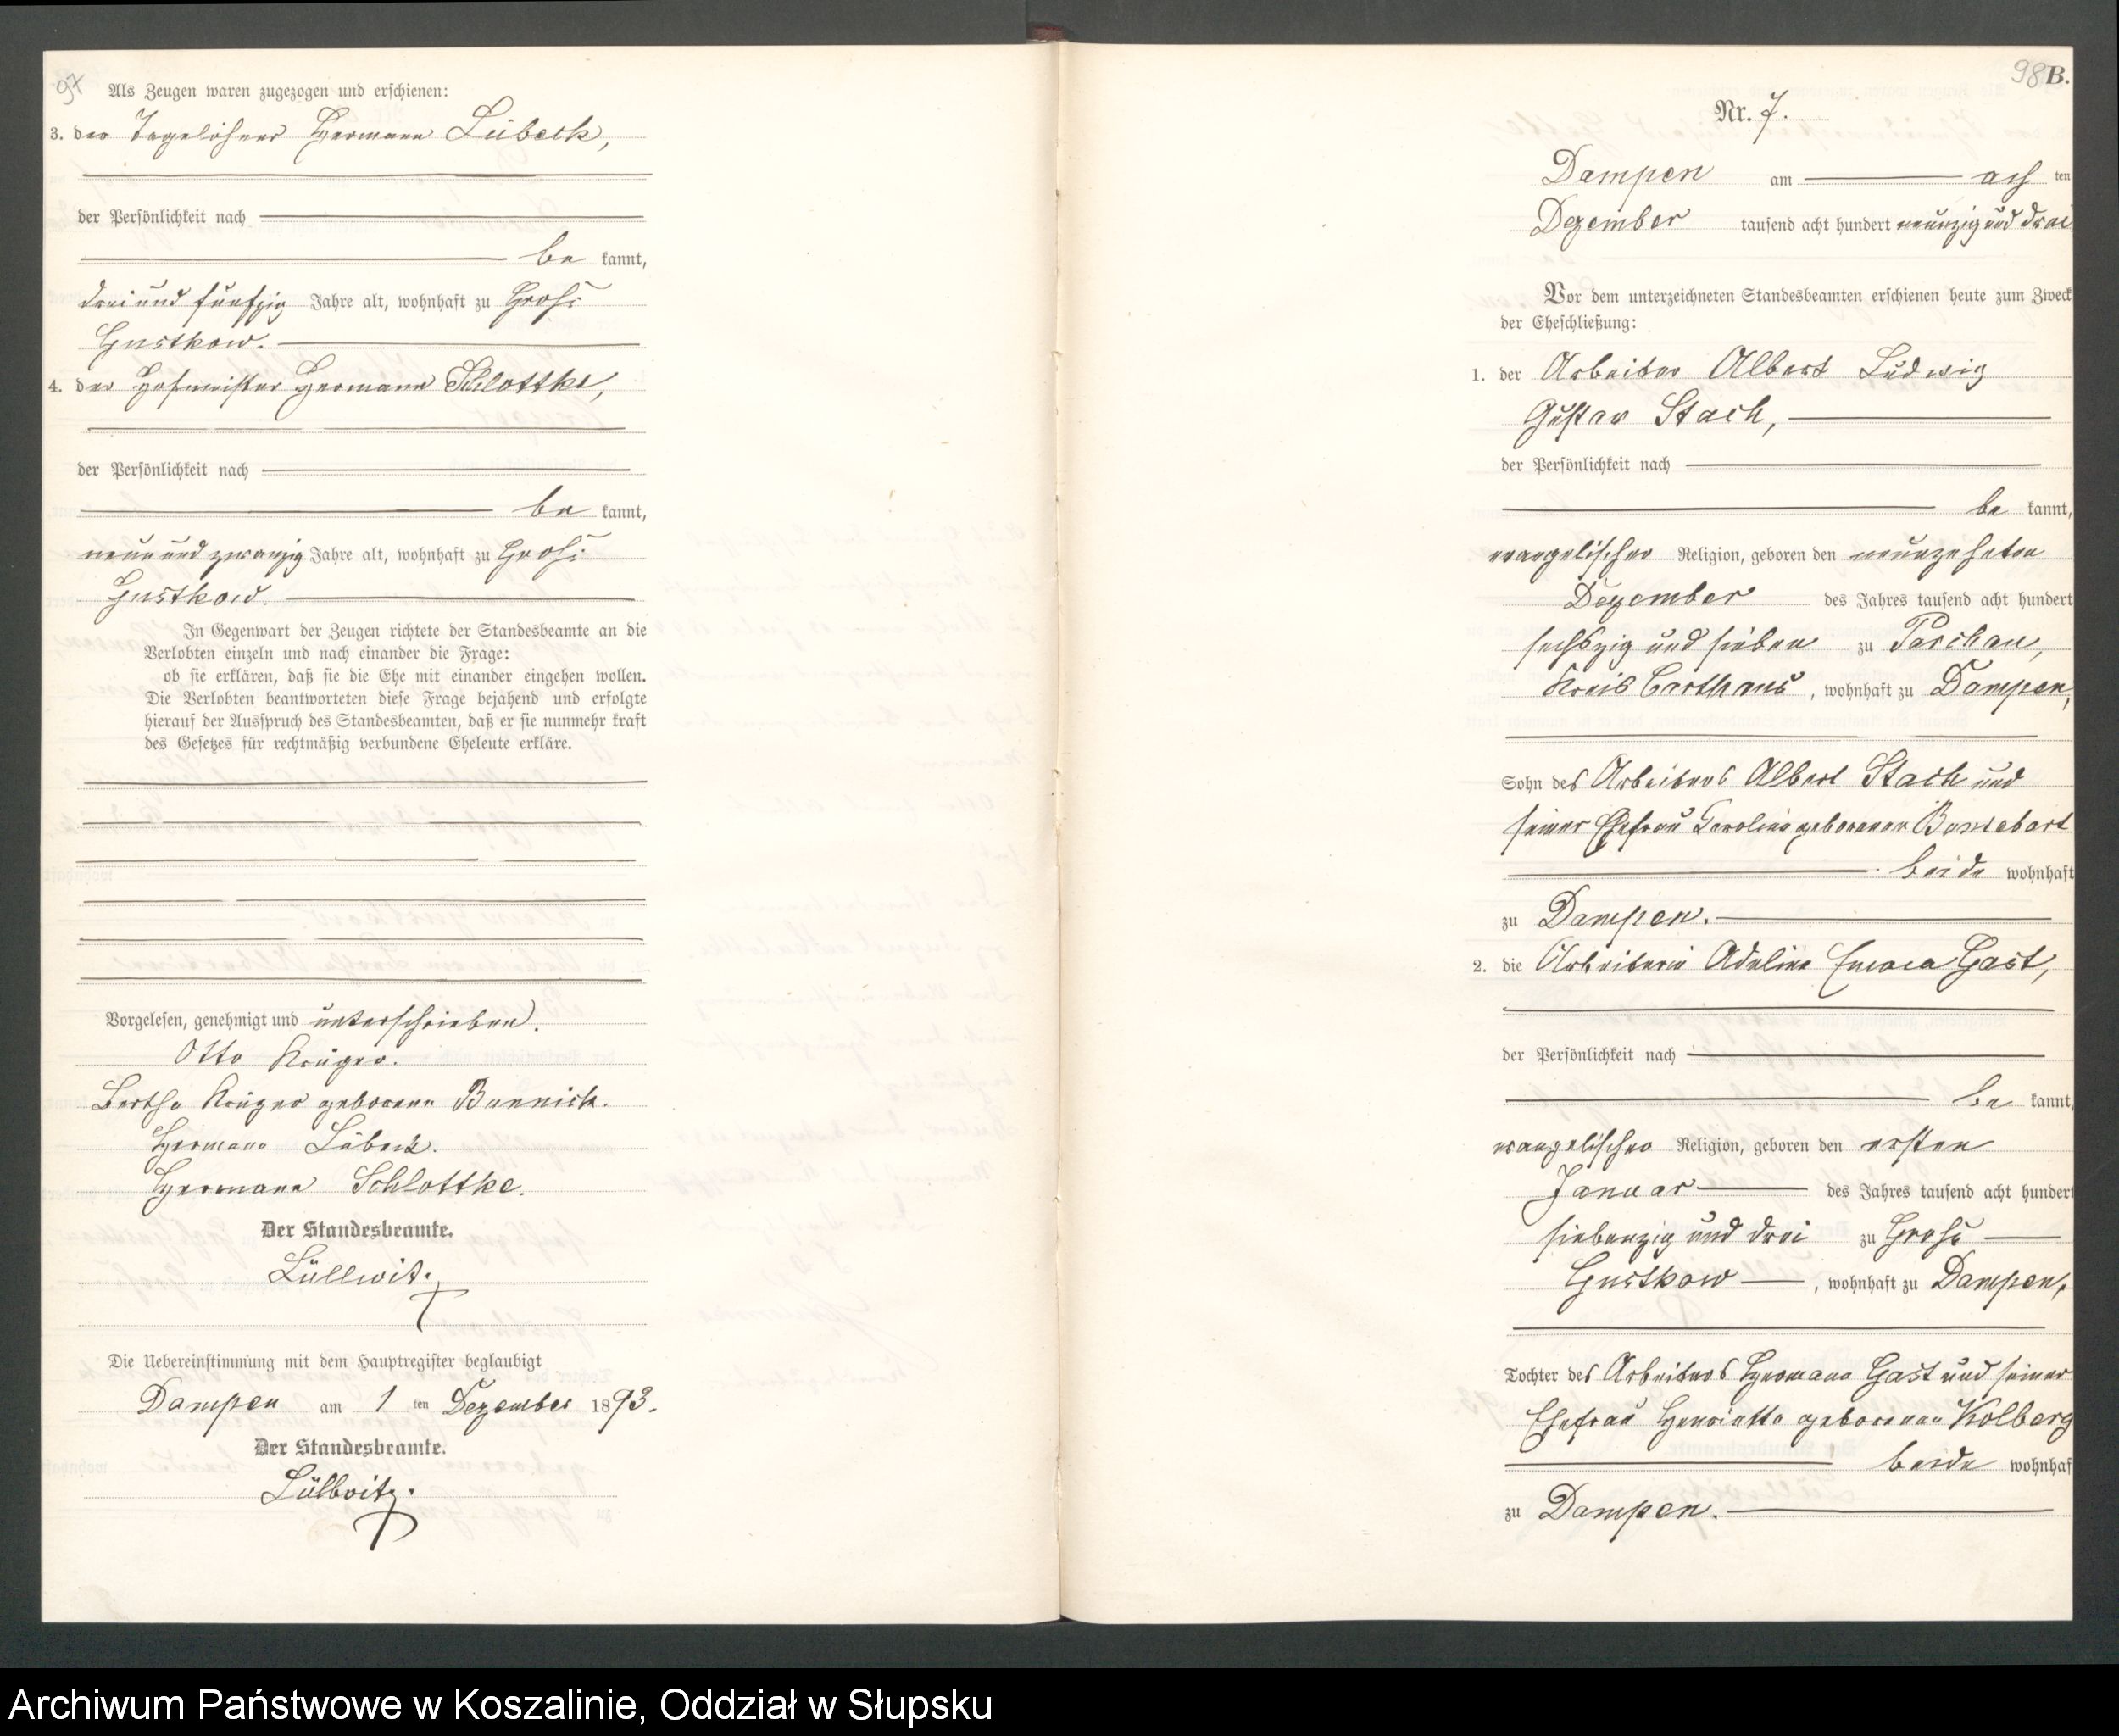 97
Als Zeugen waren zugezogen und erschienen:
3. der Tagelöhner Hermann Lübeck,
der Persönlichkeit nach
be kannt,
drei und fünfzig Jahre alt, wohnhaft zu Groß
Gustkow.
4. der Hofmeister Hermann Schlottke,
der Persönlichkeit nach
be kannt,
neun und zwanzig Jahre alt, wohnhaft zu Groß
Gustkow.
In Gegenwart der Zeugen richtete der Standesbeamte an die
Verlobten einzeln und nach einander die Frage:
ob sie erklären, daß sie die Ehe mit einander eingehen wollen.
Die Verlobten beantworteten diese Frage bejahend und erfolgte
hierauf der Ausspruch des Standesbeamten, daß er sie nunmehr kraft
des Gesetzes für rechtmäßig verbundene Eheleute erkläre.
Vorgelesen, genehmigt und unterschrieben.
Otto Krüger.
Bertha Krüger geborene Bunnick.
Hermann Lübeck.
Hermann Schlottke.
Der Standesbeamte.
Lüllwitz.
Die Uebereinstimmung mit dem Hauptregister beglaubigt
Dampen am 1 ten Dezember 1893.
Der Standesbeamte.
Lüllwitz.
98 B.
Nr. 7.
Dampen am ach ten
Dezember tausend acht hundert neunzig und drei
Vor dem unterzeichneten Standesbeamten erschienen heute zum Zweck
der Eheschließung:
1. der Arbeiter Albert Ludwig
Gustav Stach,
der Persönlichkeit nach
be kannt,
evangelischer Religion, geboren den neunzehnten
Dezember des Jahres tausend acht hundert
sechszig und sieben zu Parchau,
Kreis Carthaus, wohnhaft zu Dampen,
Sohn des Arbeiters Albert Stach und
seiner Ehefrau Caroline geborenen
beide wohnhaft
zu Dampen.
2. die Arbeiterin Adeline Emma Gast,
der Persönlichkeit nach
be kannt,
evangelischer Religion, geboren den ersten
Januar des Jahres tausend acht hundert
siebenzig und drei zu Groß
Gustkow, wohnhaft zu Dampen,
Tochter des Arbeiters Hermann Gast und seiner
Ehefrau Henriette geborenen Kolberg
beide wohnhaf
zu Dampen.
Archiwum Państwowe w Koszalinie, Oddział w Słupsku